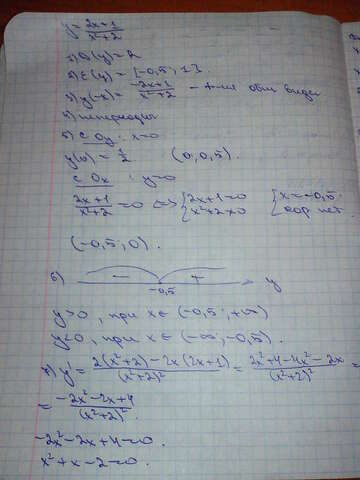 y = (2x+1)/(x²+2)
1) D(y) = R
2) E(y) = [-0,5; 1].
3) y(-x) = (-2x+1)/(x²+2) - ф-ия общ вида
4) непериод
5) с Oy: x=0
y(0) = 1/2 (0; 0,5).
с Ox : y=0
(2x+1)/(x²+2) = 0 <=> { 2x+1=0 { x=-0,5
x²+2≠0 кор нет.
(-0,5; 0).
6) - + y
-0,5
y>0, при x ∈ (-0,5; +∞)
y<0, при x ∈ (-∞; -0,5).
y' = (2(x²+2) - 2x(2x+1))/(x²+2)² = (2x²+4-4x²-2x)/(x²+2)² =
= (-2x²-2x+4)/(x²+2)².
-2x²-2x+4=0.
x²+x-2=0.